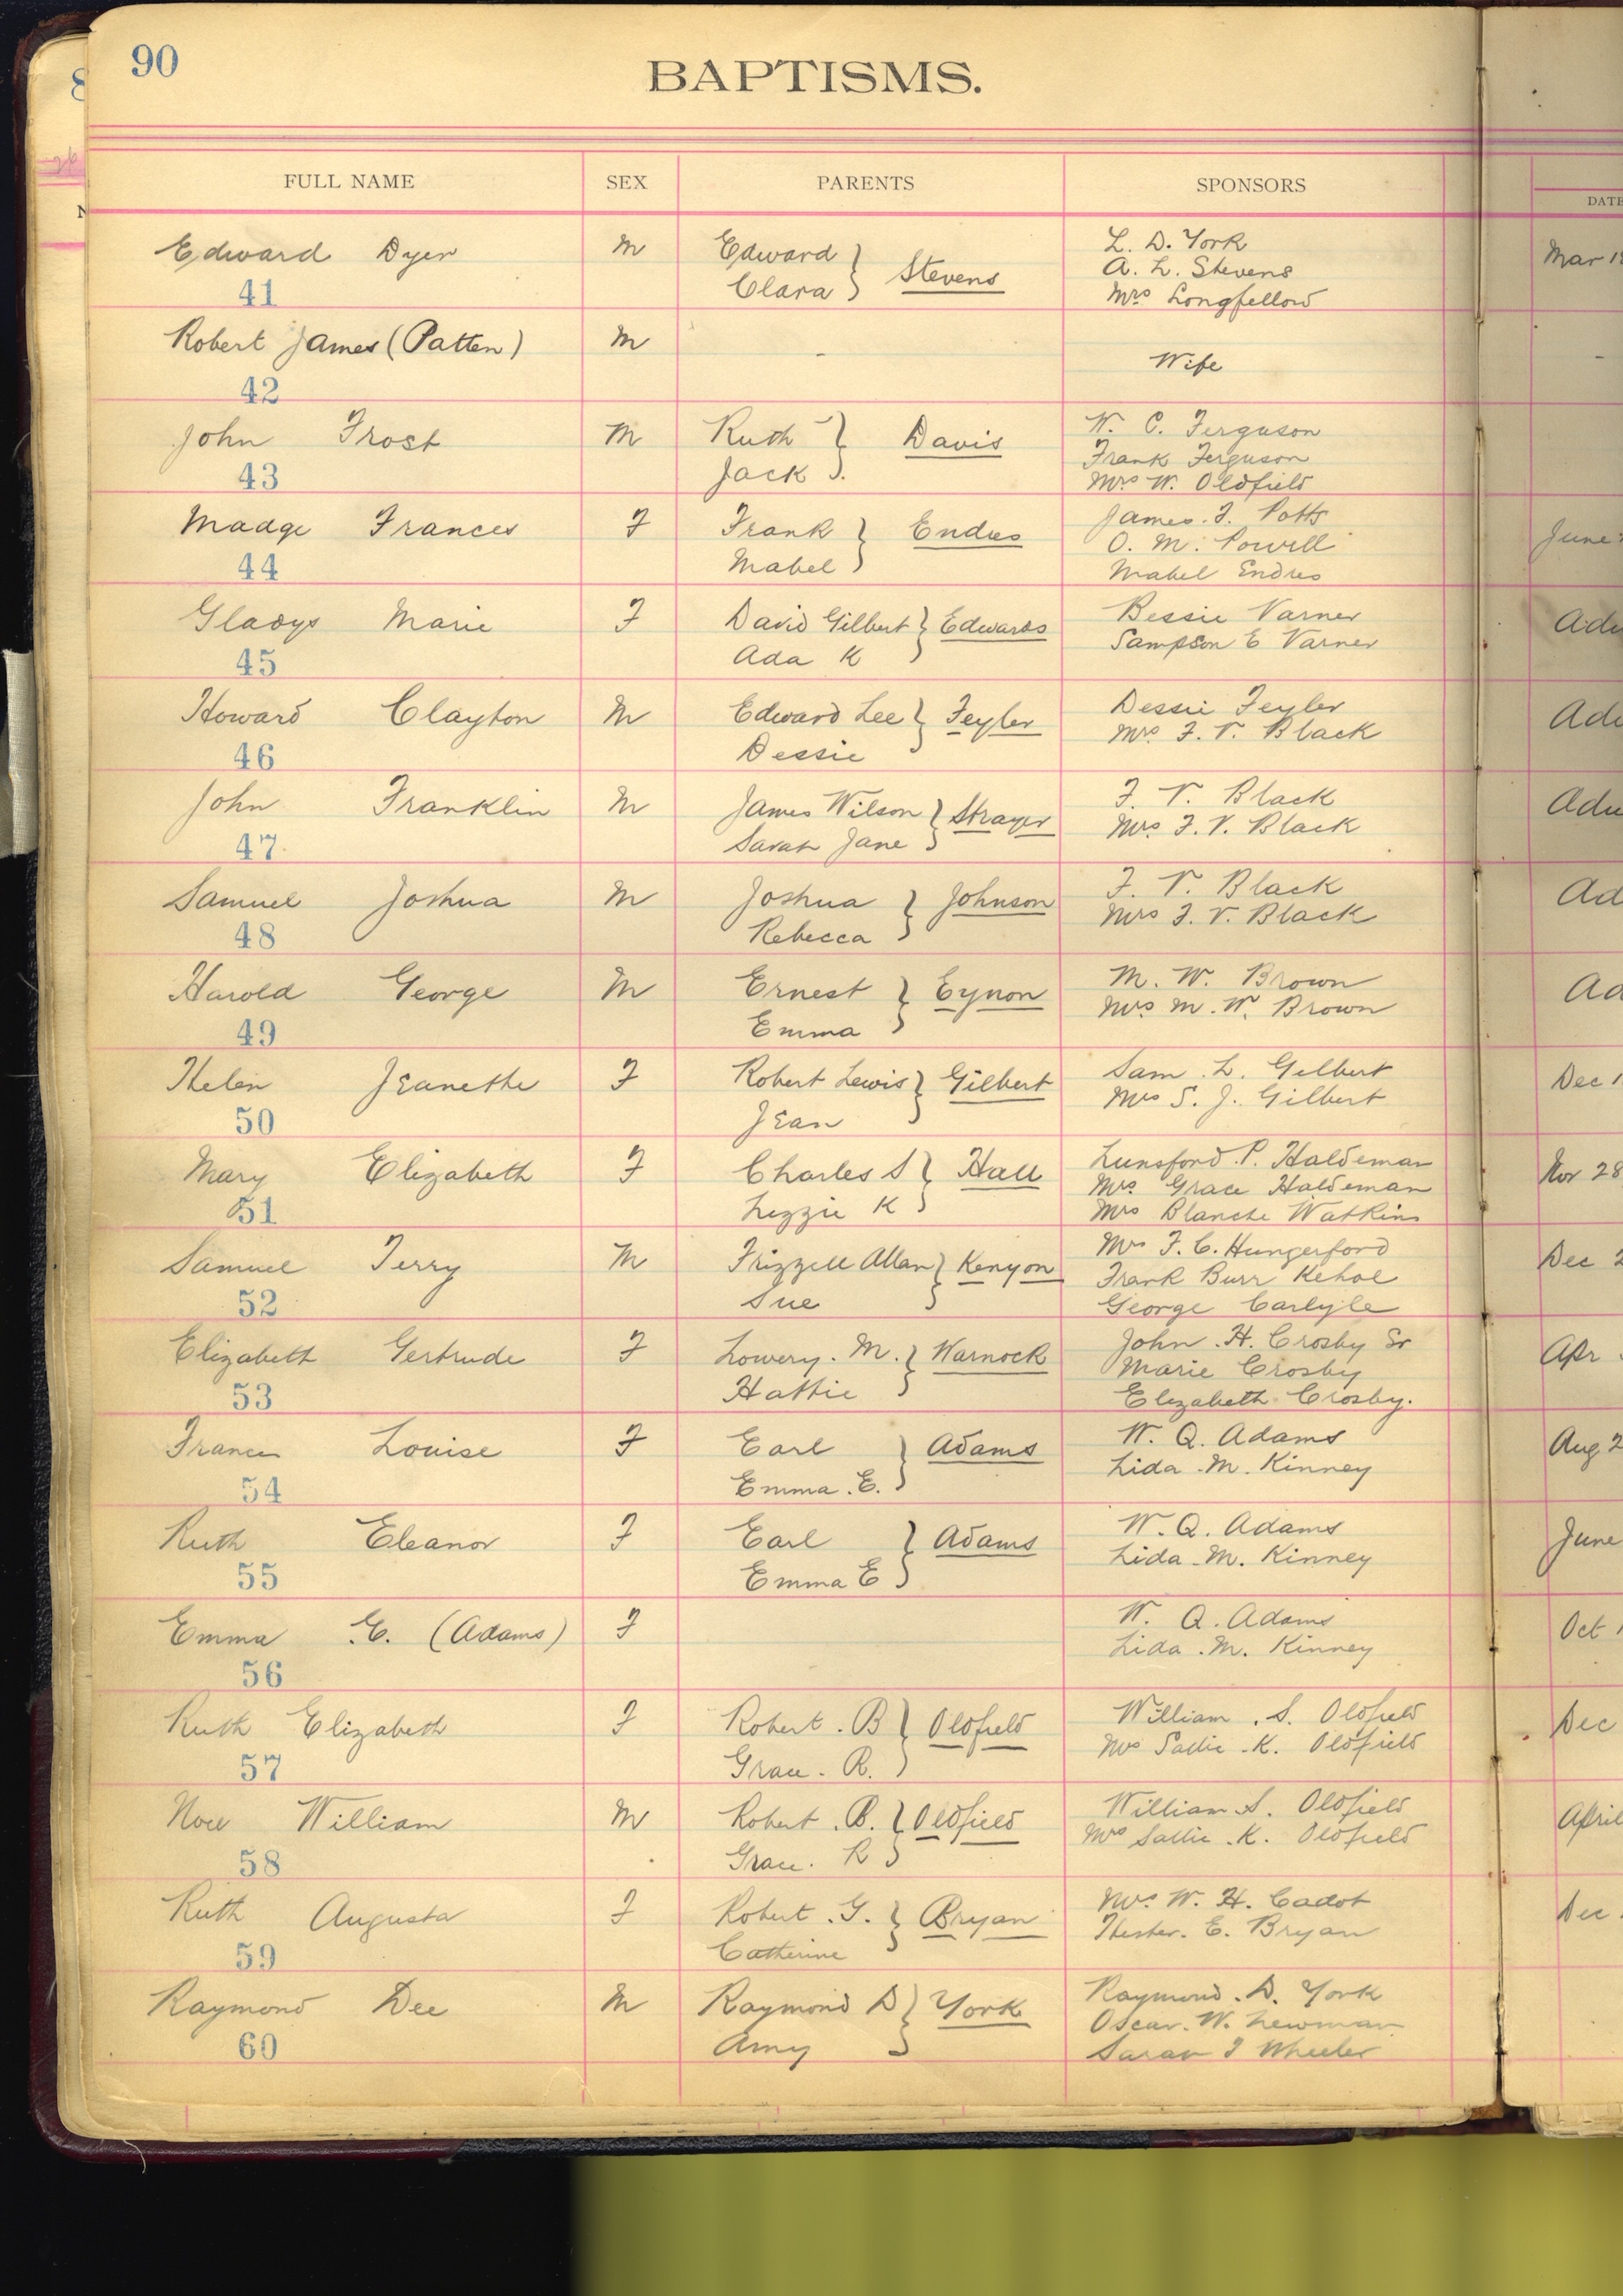 90
BAPTISMS.
FULL NAME SEX PARENTS SPONSORS DATE
Edward Dyer M Edward Clara } Stevens L. D. York Mar
A. L. Stevens
41 Mrs Longfellow
Robert James (Patten) M - Wife -
42
John Frost M Ruth Jack } Davis W. C. Ferguson
Frank Ferguson
43 Mrs W. Oldfield
Madge Frances F Frank Mabel } Endres James. F. Potts June
O. M. Powell
44 Mabel Endres
Gladys Marie F David Gilbert Ada K } Edwards Bessie Varner
45 Sampson E Varner
Howard Clayton M Edward Lee Dessie } Feyler Dessie Feyler
46 Mrs. F. V. Black
John Franklin M James Wilson Sarah Jane } Strayer F. V. Black
47 Mrs F. V. Black
Samuel Joshua M Joshua Rebecca } Johnson F. V. Black
48 Mrs F. V. Black
Harold George M Ernest Emma } Eynon M. W. Brown
49 Mrs M. W. Brown
Helen Jeanette F Robert Lewis Jean } Gilbert Sam. L. Gilbert Dec
50 Mrs S. J. Gilbert
Mary Elizabeth F Charles S Lizzie K } Hall Lunsford. P. Haldeman Nov 28
Mrs Grace Haldeman
51 Mrs Blanche Watkins
Samuel Terry M Frizzell Allan Sue } Kenyon Mrs F. C. Hungerford Dec
Frank Burr Kehoe
52 George Carlyle
Elizabeth Gertrude F Lowery. M. Hattie } Warnock John. H. Crosby Sr Apr
Marie Crosby
53 Elizabeth Crosby.
Frances Louise F Earl Emma. E. } Adams W. Q. Adams Aug
54 Lida. M. Kinney
Ruth Eleanor F Earl Emma E } Adams W. Q. Adams June
55 Lida. M. Kinney
Emma E. (Adams) F W. Q. Adams Oct
56 Lida. M. Kinney
Ruth Elizabeth F Robert. B Grace. R. } Oldfield William. S. Oldfield Dec
57 Mrs Sallie. K. Oldfield
Noel William M Robert. B. Grace. R } Oldfield William S. Oldfield April
58 Mrs Sallie. K. Oldfield
Ruth Augusta F Robert. G. Catherine } Bryan Mrs. W. H. Cadot Dec
59 Hester. E. Bryan
Raymond Dee M Raymond D Amy } York Raymond. D. York
Oscar. W. Newman
60 Sarah F Wheeler